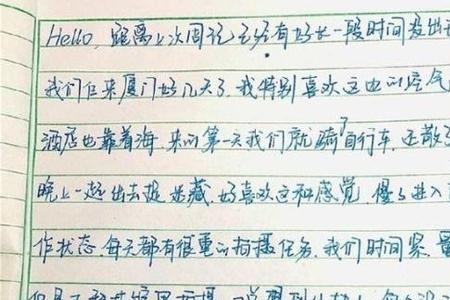 Hello, 距离上次周记已经有好长一段时间没出
我们在来厦门好几天了,我特别喜欢这边的空气
酒店也靠着海,来的第一天我们就骑了自行车,还散了
晚上一起出去捉迷藏,好喜欢这种感觉,慢慢进入
作状态,每天都有很重的拍摄任务,我们时间紧,